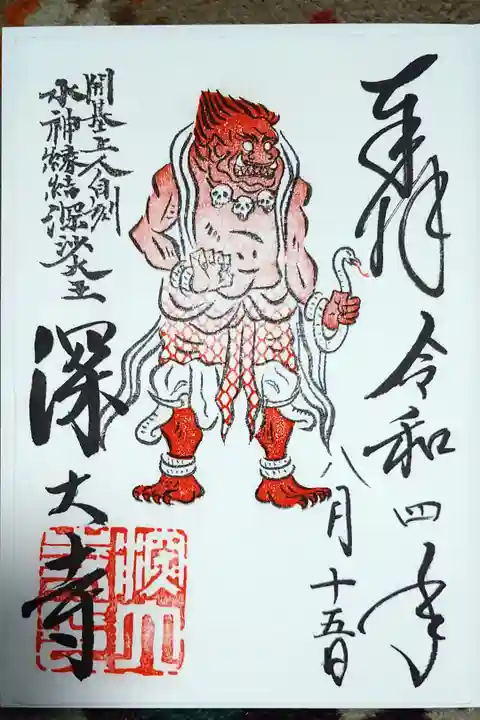 奉拝
令和四年
八月十五日
開基上人自刻
水神縁結深沙大王
深大寺
深大寺印